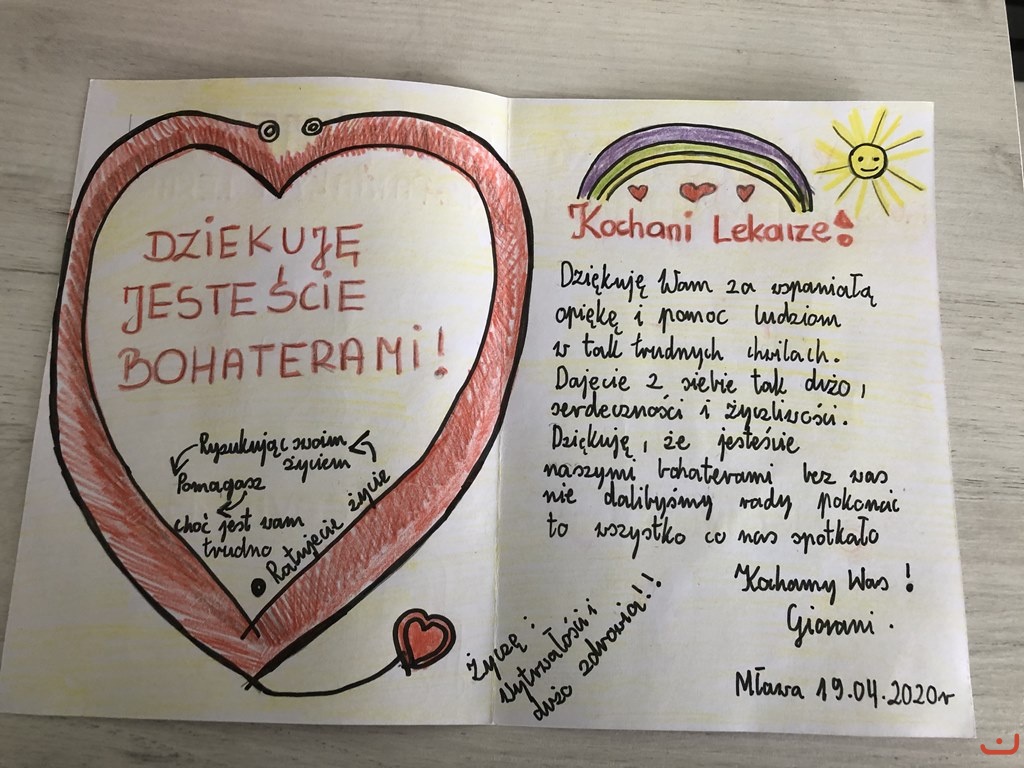 DZIEKUJĘ
JESTEŚCIE
BOHATERAMI!
Ryzukując swoim
życiem
Pomagasz
choć jest wam
trudno
Ratujecie życie
Kochani Lekarze!
Dziękuję Wam za wspaniałą
opiękę i pomoc ludziom
w tak trudnych chwilach.
Dajęcie z siebie tak dużo,
serdeczności i życzliwości.
Dziękuję, że jesteście
naszymi bohaterami bez was
nie dalibyśmy rady pokonać
to wszystko co nas spotkało
Kochamy Was!
Giovani.
Życzę:
Wytrwałości i
dużo zdrowia!!
Mława 19.04.2020r